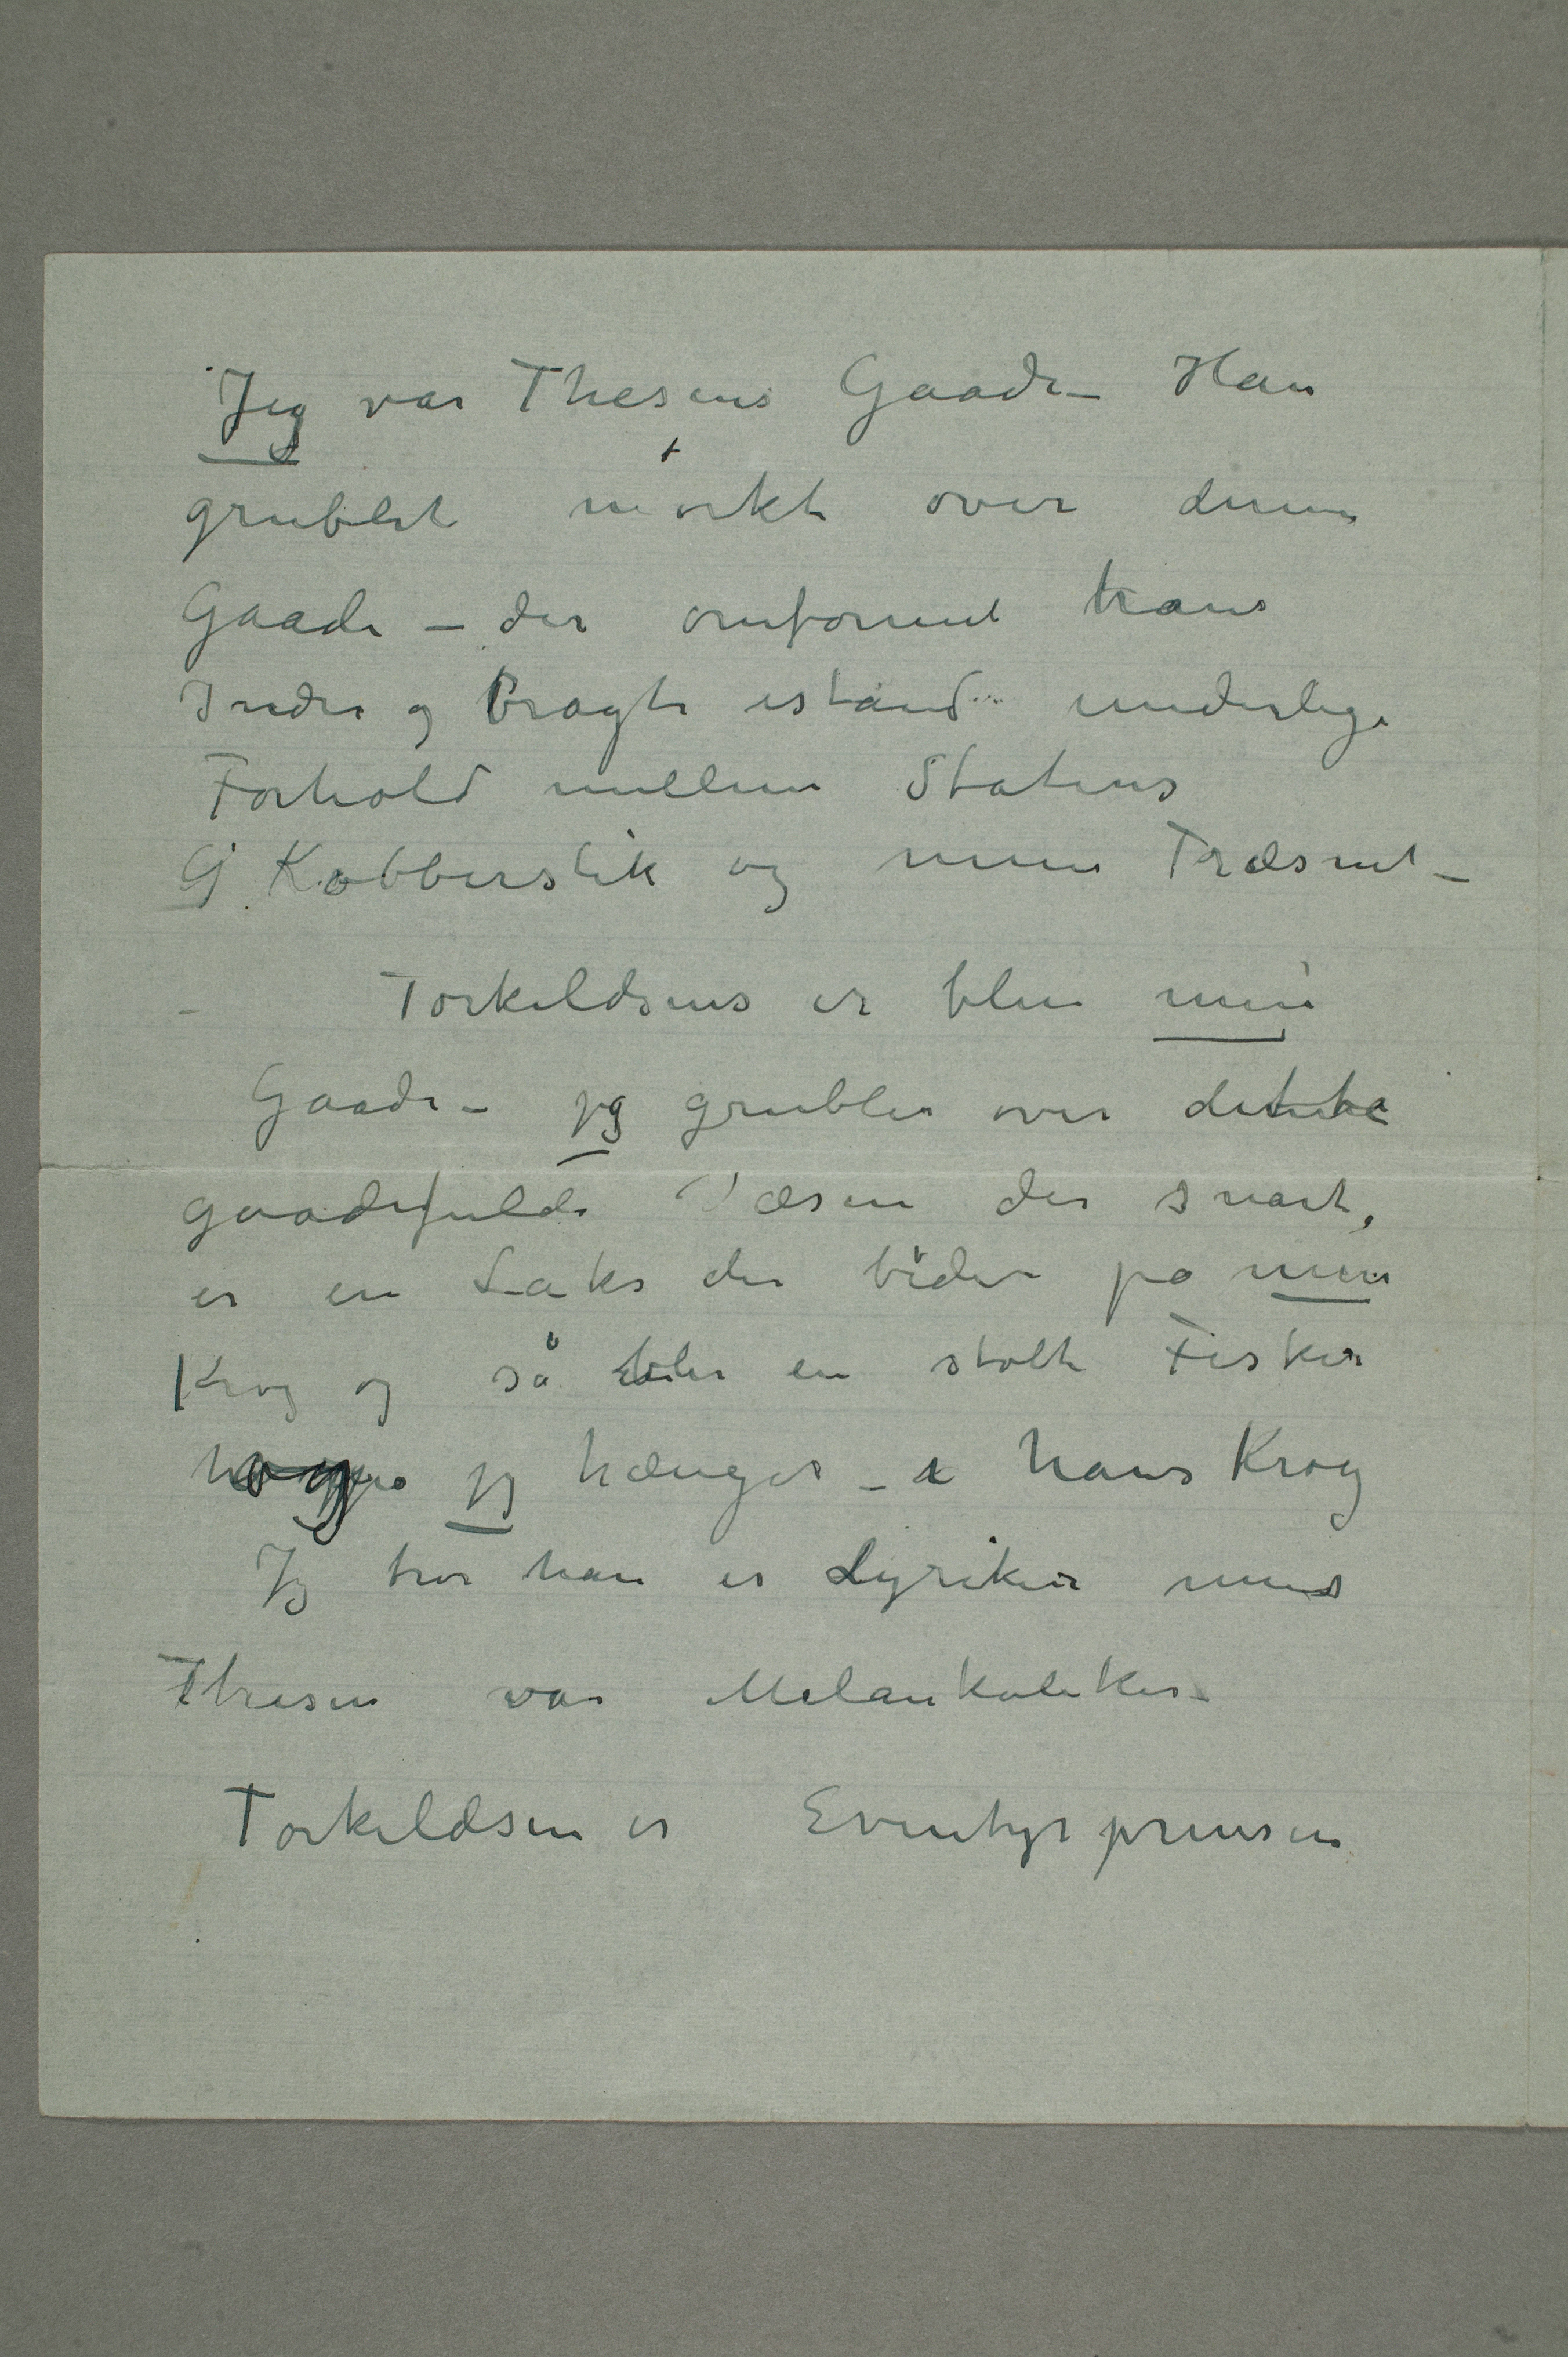 Jeg var Thesens Gaade – Han
grublet mørkt over denne
Gaade – der omformet hans
Indre og Bragte istand underlige
Forhold mellem Statens
Kobberstik og mine Træsnit –
Torkildsens er bleven min
Gaade – jeg grubler over dette
gaadefulde Væsen der snart,
er en Laks der bider på min
Krog og så blir en stolt Fisker
jeg hænger – i hans Krog
Jeg tror han er Lyriker mens
Thesen var Melankoliker –
Torkildsen er Eventyrprinsen